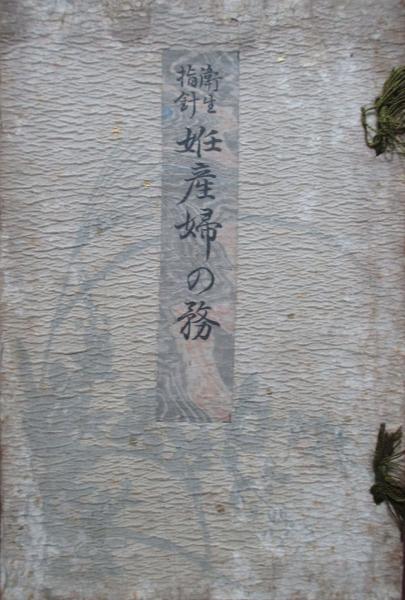 衛生
指針
姙産婦の務